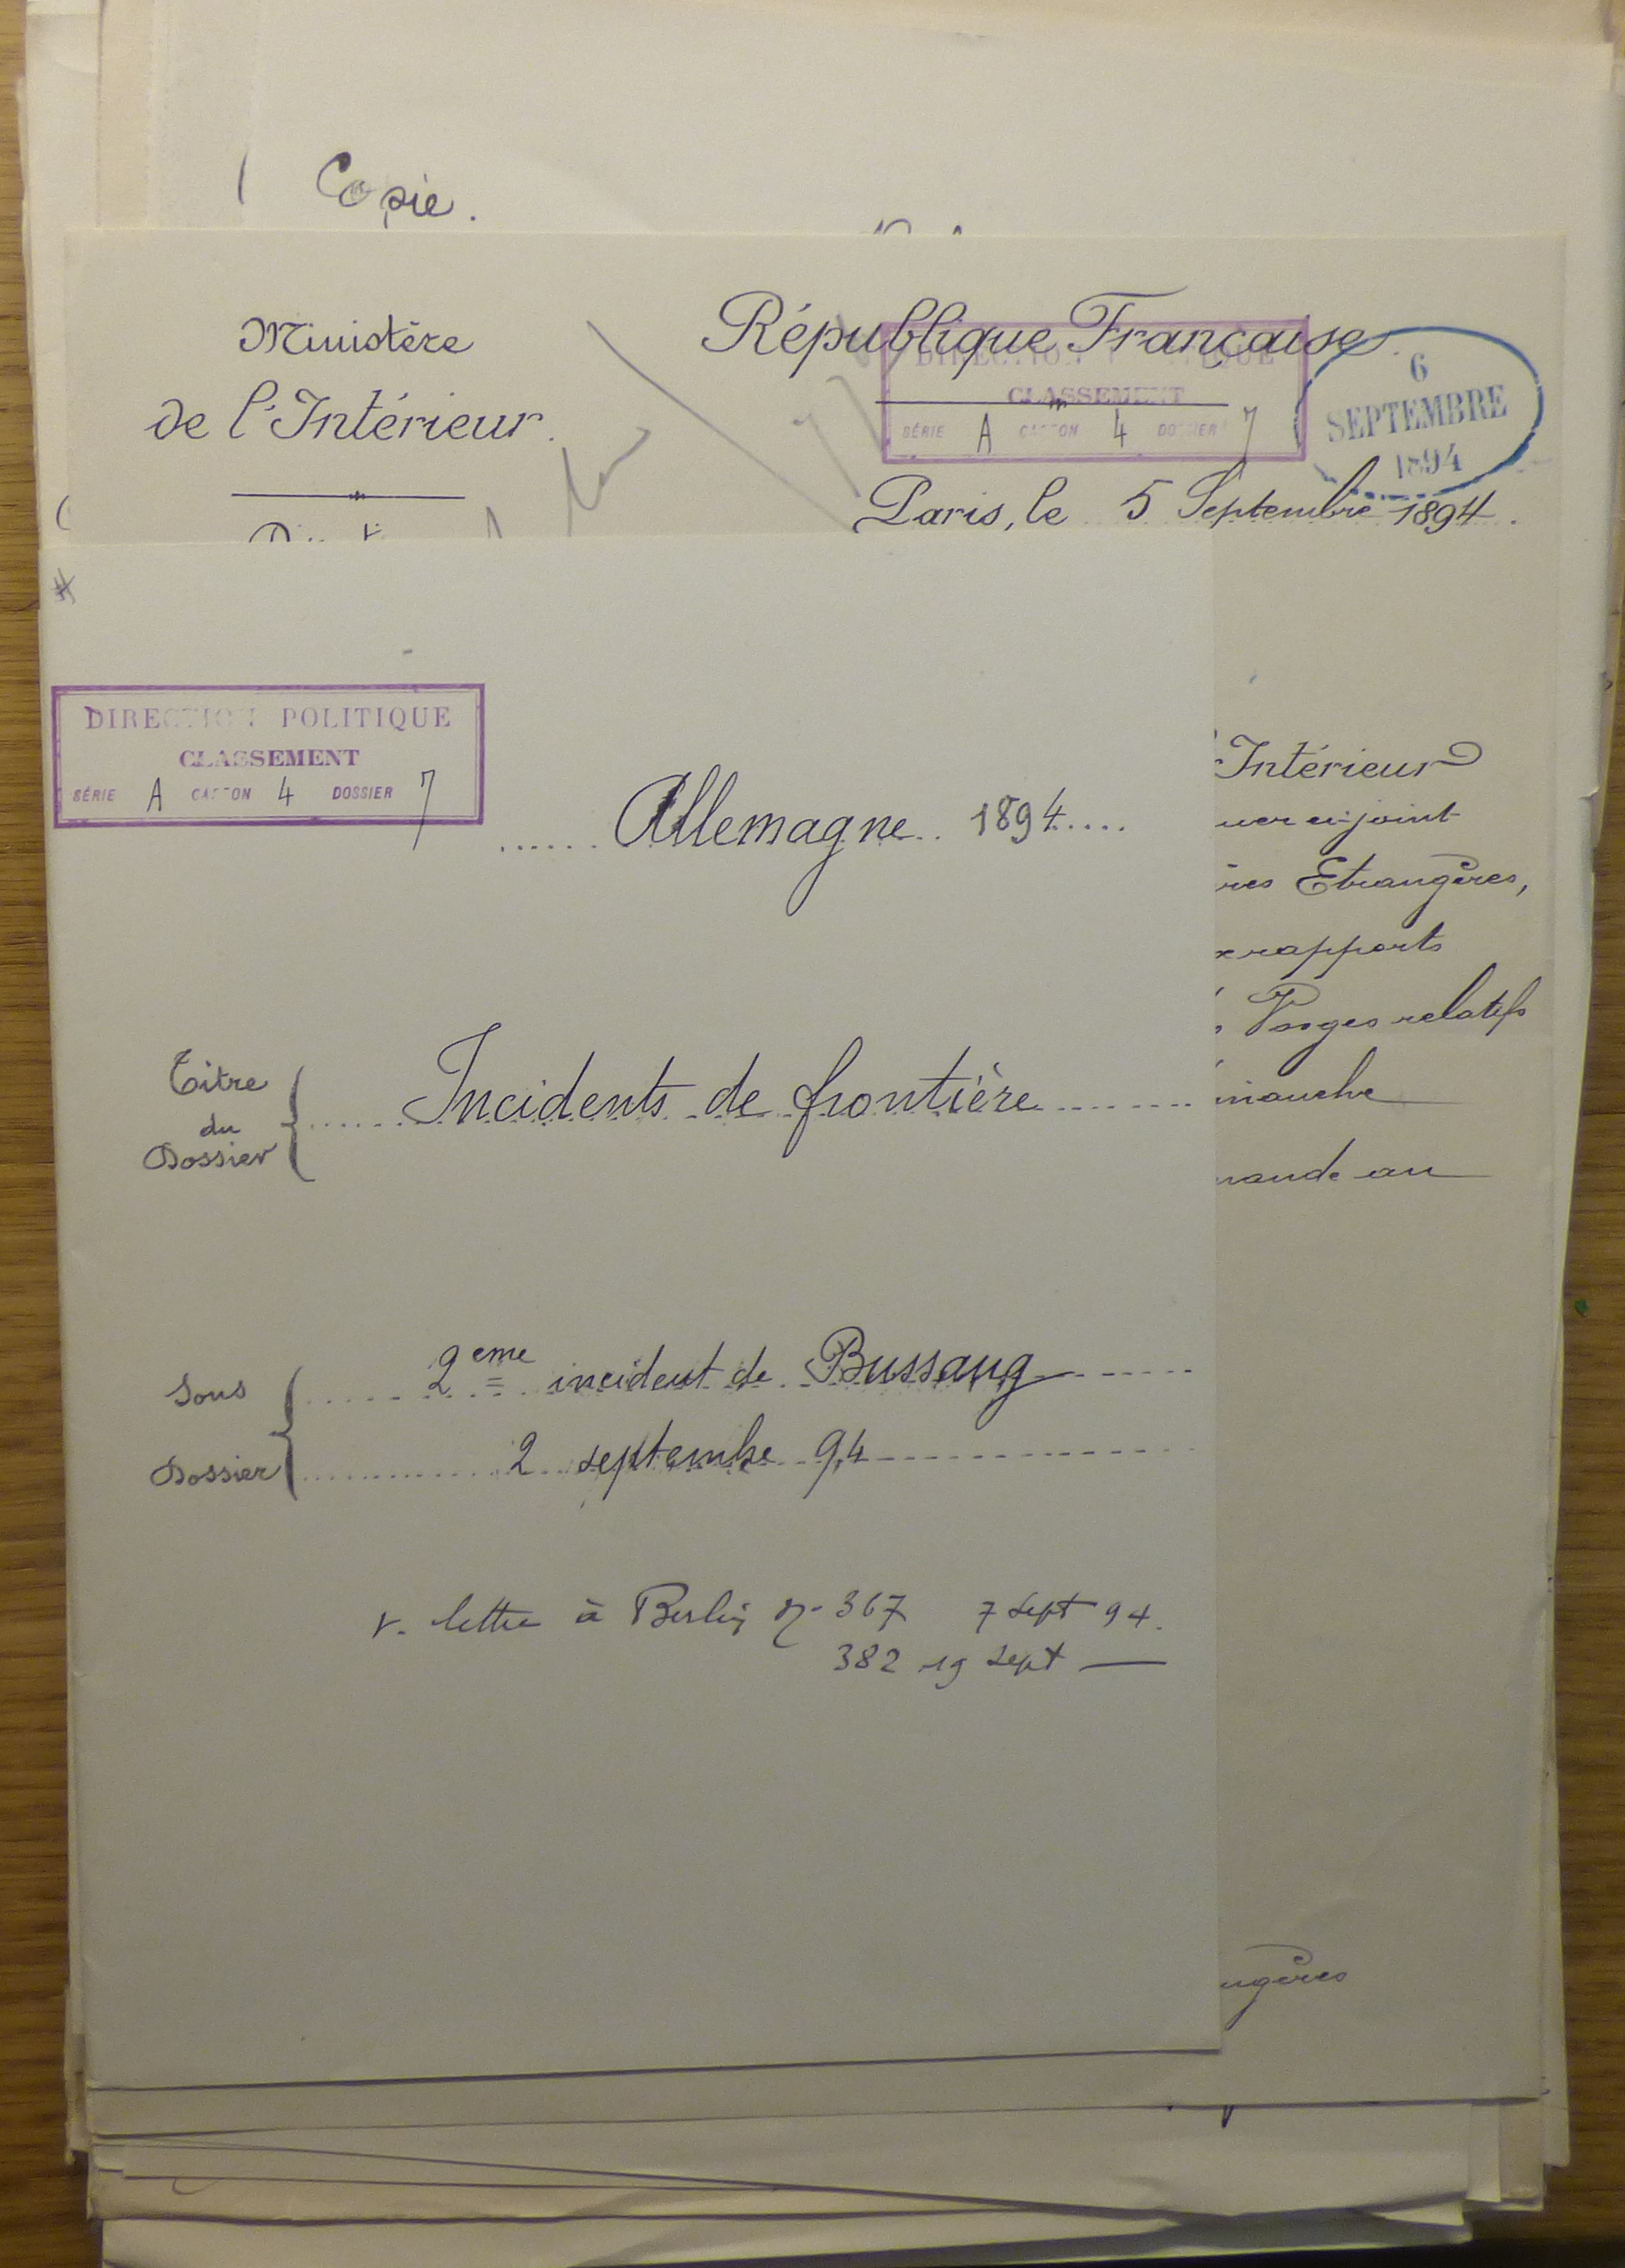 Copie.
Ministère
de l'Intérieur.
République Française
DIRECTION POLITIQUE
CLASSEMENT
SÉRIE A CARTON 4 DOSSIER 7
6
SEPTEMBRE
1894
Paris, le 5 Septembre 1894.
DIRECTION POLITIQUE
CLASSEMENT
SÉRIE A CARTON 4 DOSSIER 7
Allemagne 1894
Titre
du
Dossier
Incidents de frontière
Sous
Dossier
2eme incident de Bussang
2 septembre 94
v. lettre à Berlin no 367 7 sept 94.
382 19 sept —
Intérieur
uer ci-joint
res Etrangères,
rapports
Vosges relatifs
manche
mande au
ngères